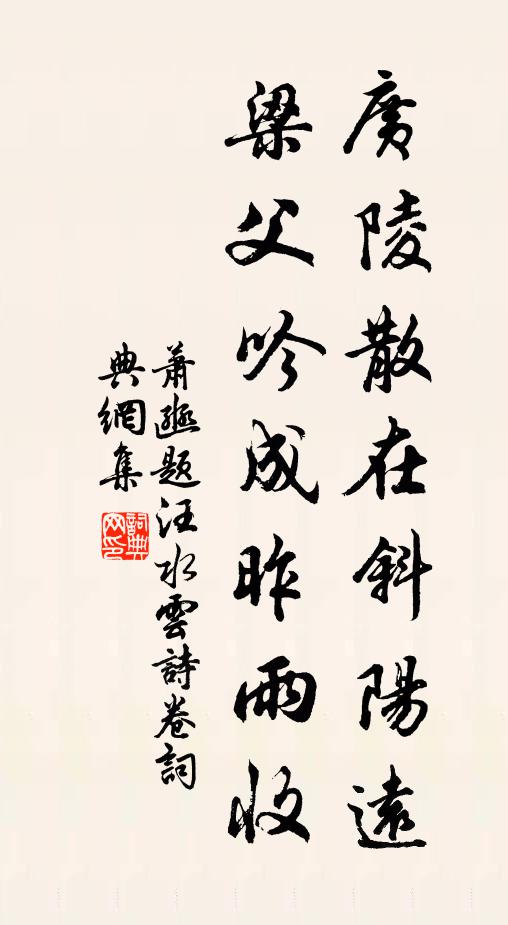 廣陵散在斜陽遠
梁父吟成昨雨收
蕭㔥題汪水雲詩卷詞
典網集
詞典
网印